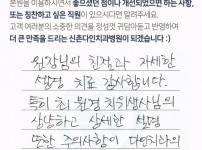 본원을 이용하시면서 좋으셨던 점이나 개선되었으면 하는 사항,
또는 칭찬하고 싶은 직원이 있으시다면 알려주세요.
고객 여러분의 소중한 의견을 정성껏 귀담아듣고 반영하여
더 큰 만족을 드리는 신촌다인치과병원이 되겠습니다 :)
원장님의 친절과 자세한
설명 치료 감사합니다.
특히 치위생사님의
상냥하고 상세한 설명
또한 주의사항이